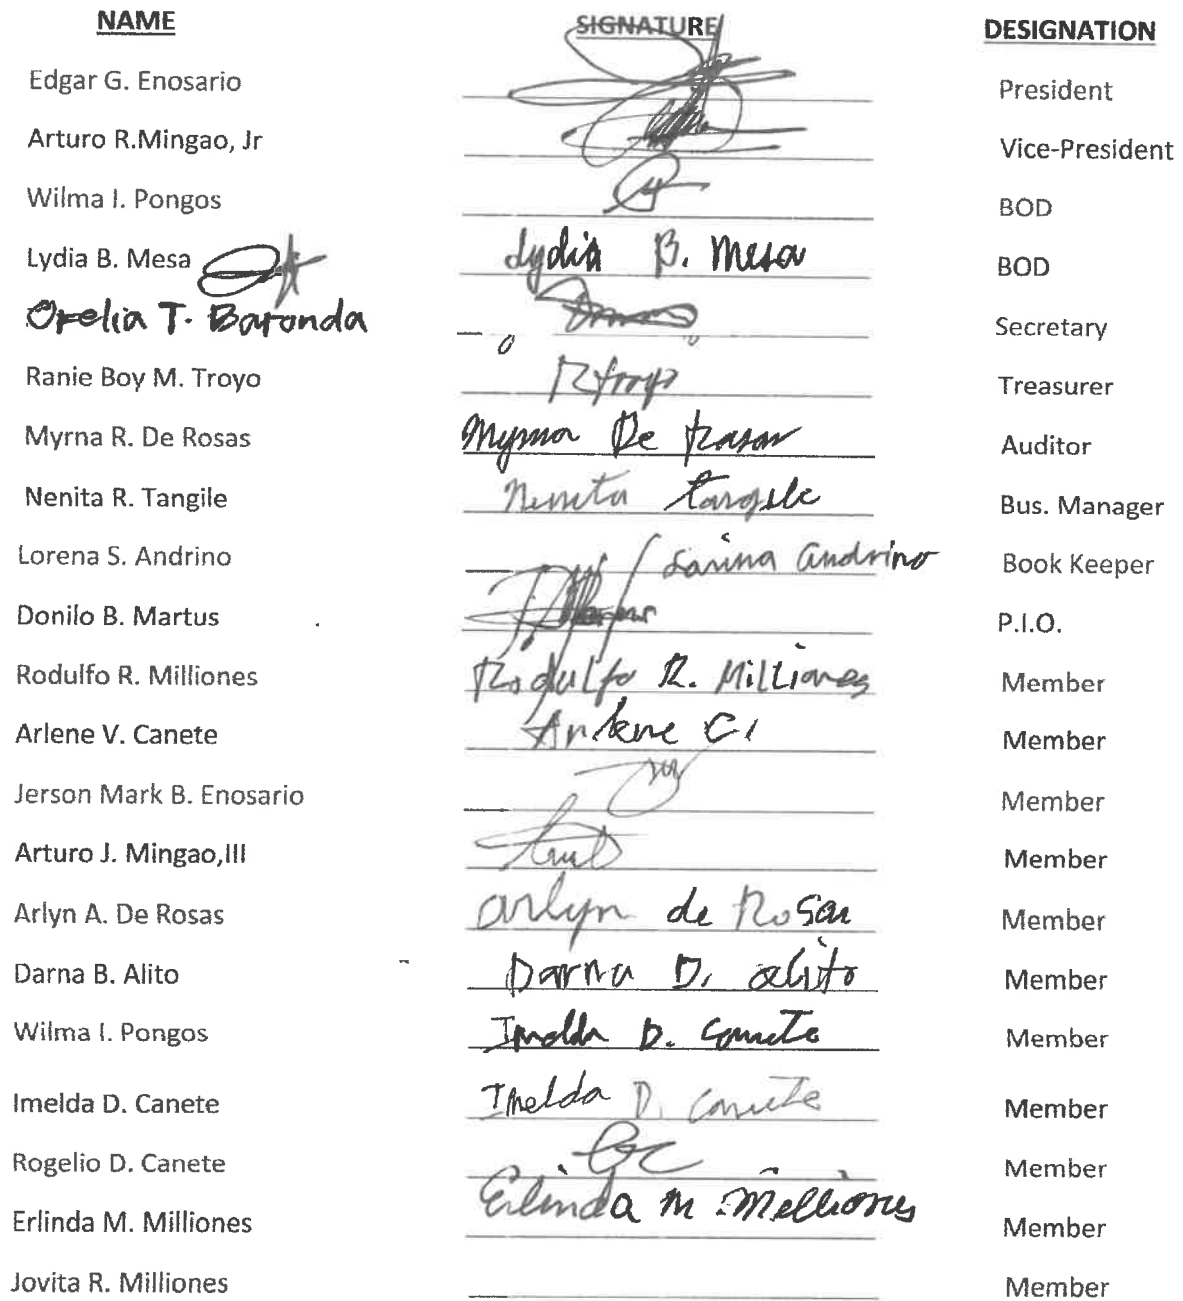 NAME SIGNATURE DESIGNATION
Edgar G. Enosario President
Arturo R.Mingao, Jr Vice-President
Wilma I. Pongos BOD
Lydia B. Mesa Lydia B. Mesa BOD
Ofelia T. Baronda Secretary
Ranie Boy M. Troyo RTroyo Treasurer
Myrna R. De Rosas Myrna De Rosas Auditor
Nenita R. Tangile Nenita Tangile Bus. Manager
Lorena S. Andrino Lorina Andrino Book Keeper
Donilo B. Martus P.I.O.
Rodulfo R. Milliones Rodulfo R. Milliones Member
Arlene V. Canete Arlene C. Member
Jerson Mark B. Enosario Member
Arturo J. Mingao,III Member
Arlyn A. De Rosas arlyn de Rosas Member
Darna B. Alito Darna D. alito Member
Wilma I. Pongos Imelda D. Canete Member
Imelda D. Canete Imelda D. Canete Member
Rogelio D. Canete Member
Erlinda M. Milliones Erlinda M. Melliones Member
Jovita R. Milliones Member